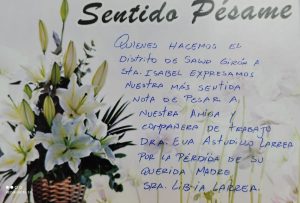 Sentido Pésame
QUIENES HACEMOS EL
DISTRITO DE SALUD GIRÓN A
STA. ISABEL EXPRESAMOS
NUESTRA MÁS SENTIDA
NOTA DE PESAR A
NUESTRA AMIGA Y
COMPAÑERA DE TRABAJO
DRA. EVA ASTUDILLO LARREA
POR LA PÉRDIDA DE SU
QUERIDA MADRE
SRA. LIBIA LARREA.